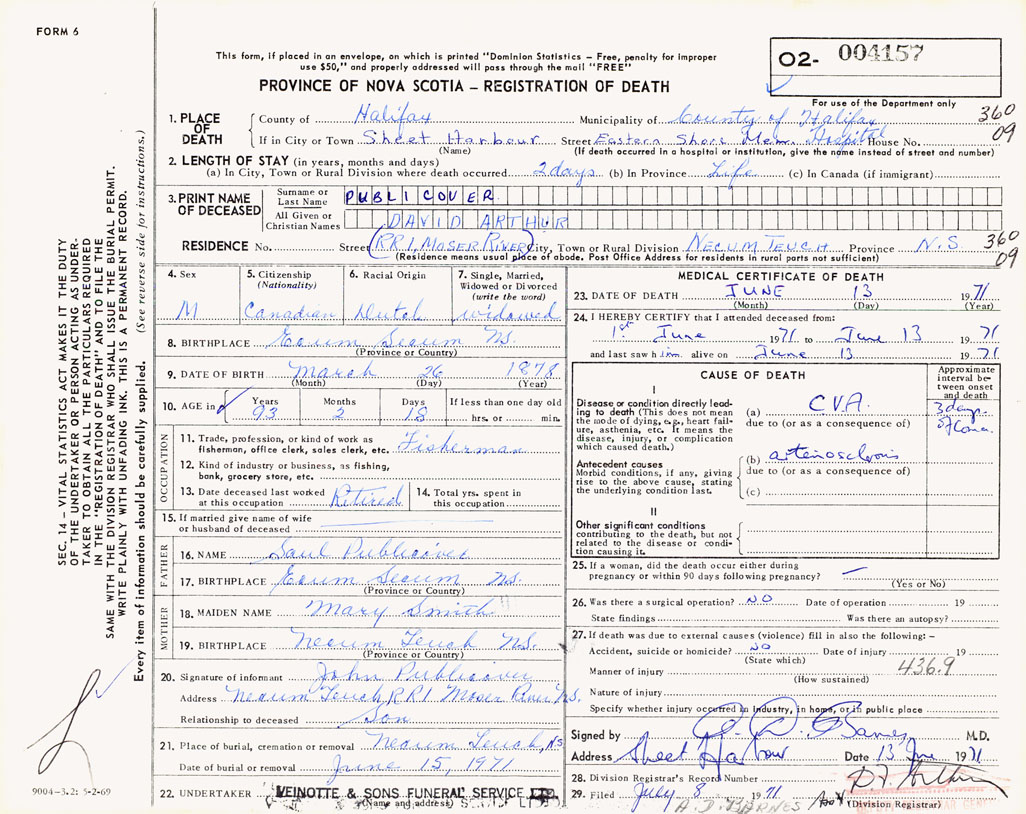 FORM 6
This form, if placed in an envelope, on which is printed "Dominion Statistics – Free, penalty for improper
use $50," and properly addressed will pass through the mail "FREE"
O2- 004157
For use of the Department only
PROVINCE OF NOVA SCOTIA – REGISTRATION OF DEATH
360
09
1. PLACE OF DEATH
County of Halifax Municipality of County of Halifax
If in City or Town Sheet Harbour Street Eastern Shore Mem. Hospital House No.
(Name) (If death occurred in a hospital or institution, give the name instead of street and number)
2. LENGTH OF STAY (in years, months and days)
(a) In City, Town or Rural Division where death occurred 2 days (b) In Province Life (c) In Canada (if immigrant)
3. PRINT NAME OF DECEASED
Surname or Last Name PUBLICOVER
All Given or Christian Names DAVID ARTHUR
RESIDENCE No. Street (RR1, MOSER RIVER) City, Town or Rural Division NECUM TEUCH Province N.S
(Residence means usual place of abode. Post Office Address for residents in rural parts not sufficient)
360
09
4. Sex M
5. Citizenship (Nationality) Canadian
6. Racial Origin Dutch
7. Single, Married, Widowed or Divorced (write the word) widowed
8. BIRTHPLACE Ecum Secum N.S.
(Province or Country)
9. DATE OF BIRTH March 26 1878
(Month) (Day) (Year)
10. AGE in Years 93 Months 2 Days 18 If less than one day old hrs. or min.
OCCUPATION
11. Trade, profession, or kind of work as fisherman, office clerk, sales clerk, etc. Fisherman
12. Kind of industry or business, as fishing, bank, grocery store, etc.
13. Date deceased last worked at this occupation Retired
14. Total yrs. spent in this occupation
15. If married give name of wife or husband of deceased
FATHER
16. NAME Saul Publicover
17. BIRTHPLACE Ecum Secum N.S.
(Province or Country)
MOTHER
18. MAIDEN NAME Mary Smith
19. BIRTHPLACE Necum Teuch N.S.
(Province or Country)
20. Signature of informant John Publicover
Address Necum Teuch, RR1 Moser River N.S.
Relationship to deceased Son
21. Place of burial, cremation or removal Necum Teuch, N.S
Date of burial or removal June 15, 1971
22. UNDERTAKER VEINOTTE & SONS FUNERAL SERVICE LTD.
(Name and address)
MEDICAL CERTIFICATE OF DEATH
23. DATE OF DEATH JUNE 13 1971
(Month) (Day) (Year)
24. I HEREBY CERTIFY that I attended deceased from:
1st June 1971 to June 13 1971
and last saw him alive on June 13 1971
CAUSE OF DEATH
Approximate interval between onset and death
I
Disease or condition directly leading to death (This does not mean the mode of dying, e.g., heart failure, asthenia, etc. It means the disease, injury, or complication which caused death.)
(a) C.V.A. 3 days
due to (or as a consequence of)
Antecedent causes
Morbid conditions, if any, giving rise to the above cause, stating the underlying condition last.
(b) arteriosclerosis
due to (or as a consequence of)
(c)
II
Other significant conditions contributing to the death, but not related to the disease or condition causing it.
25. If a woman, did the death occur either during
pregnancy or within 90 days following pregnancy? –
(Yes or No)
26. Was there a surgical operation? NO Date of operation 19
State findings Was there an autopsy?
27. If death was due to external causes (violence) fill in also the following:–
Accident, suicide or homicide? NO Date of injury 19
(State which)
Manner of injury 436.9
(How sustained)
Nature of injury
Specify whether injury occurred in industry, in home, or in public place
Signed by Barnes M.D.
Address Sheet Harbour Date 13 June 1971
28. Division Registrar's Record Number
29. Filed July 8 1971
(Division Registrar)
A. D. BARNES
SEC. 14 – VITAL STATISTICS ACT MAKES IT THE DUTY
OF THE UNDERTAKER OR PERSON ACTING AS UNDER-
TAKER TO OBTAIN ALL THE PARTICULARS REQUIRED
IN THE "REGISTRATION OF DEATH" AND TO FILE THE
SAME WITH THE DIVISION REGISTRAR WHO SHALL ISSUE THE BURIAL PERMIT.
WRITE PLAINLY WITH UNFADING INK. THIS IS A PERMANENT RECORD.
Every item of information should be carefully supplied. (See reverse side for instructions.)
9004-3.2: 5-2-69